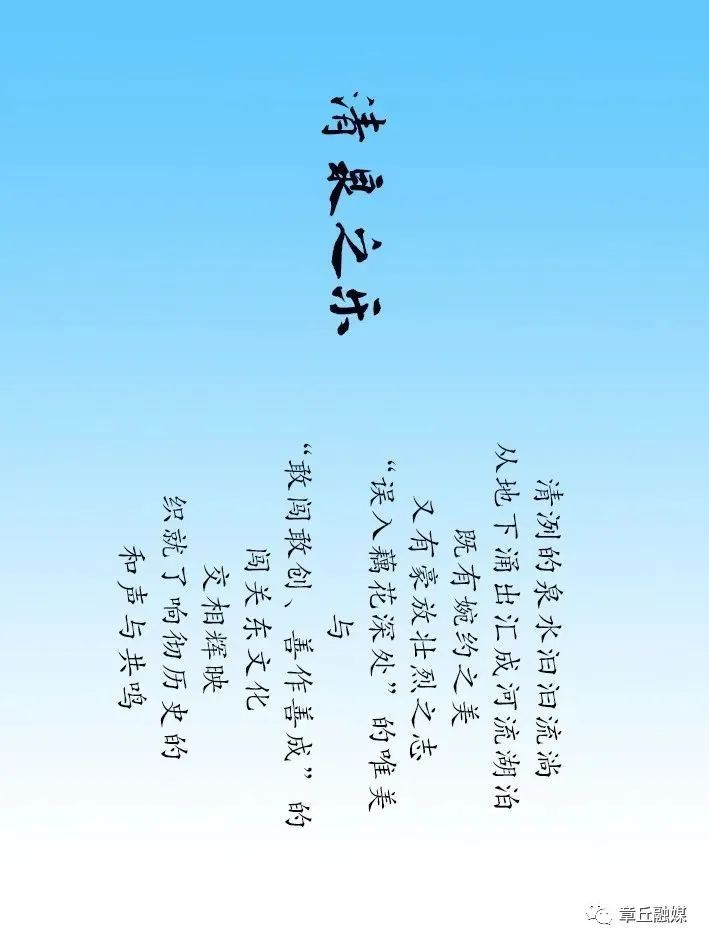 清泉之乐
清洌的泉水汩汩流淌
从地下涌出汇成河流湖泊
既有婉约之美
又有豪放壮烈之志
“误入藕花深处”的唯美
与
“敢闯敢创、善作善成”的
闯关东文化
交相辉映
织就了响彻历史的
和声与共鸣
章丘融媒